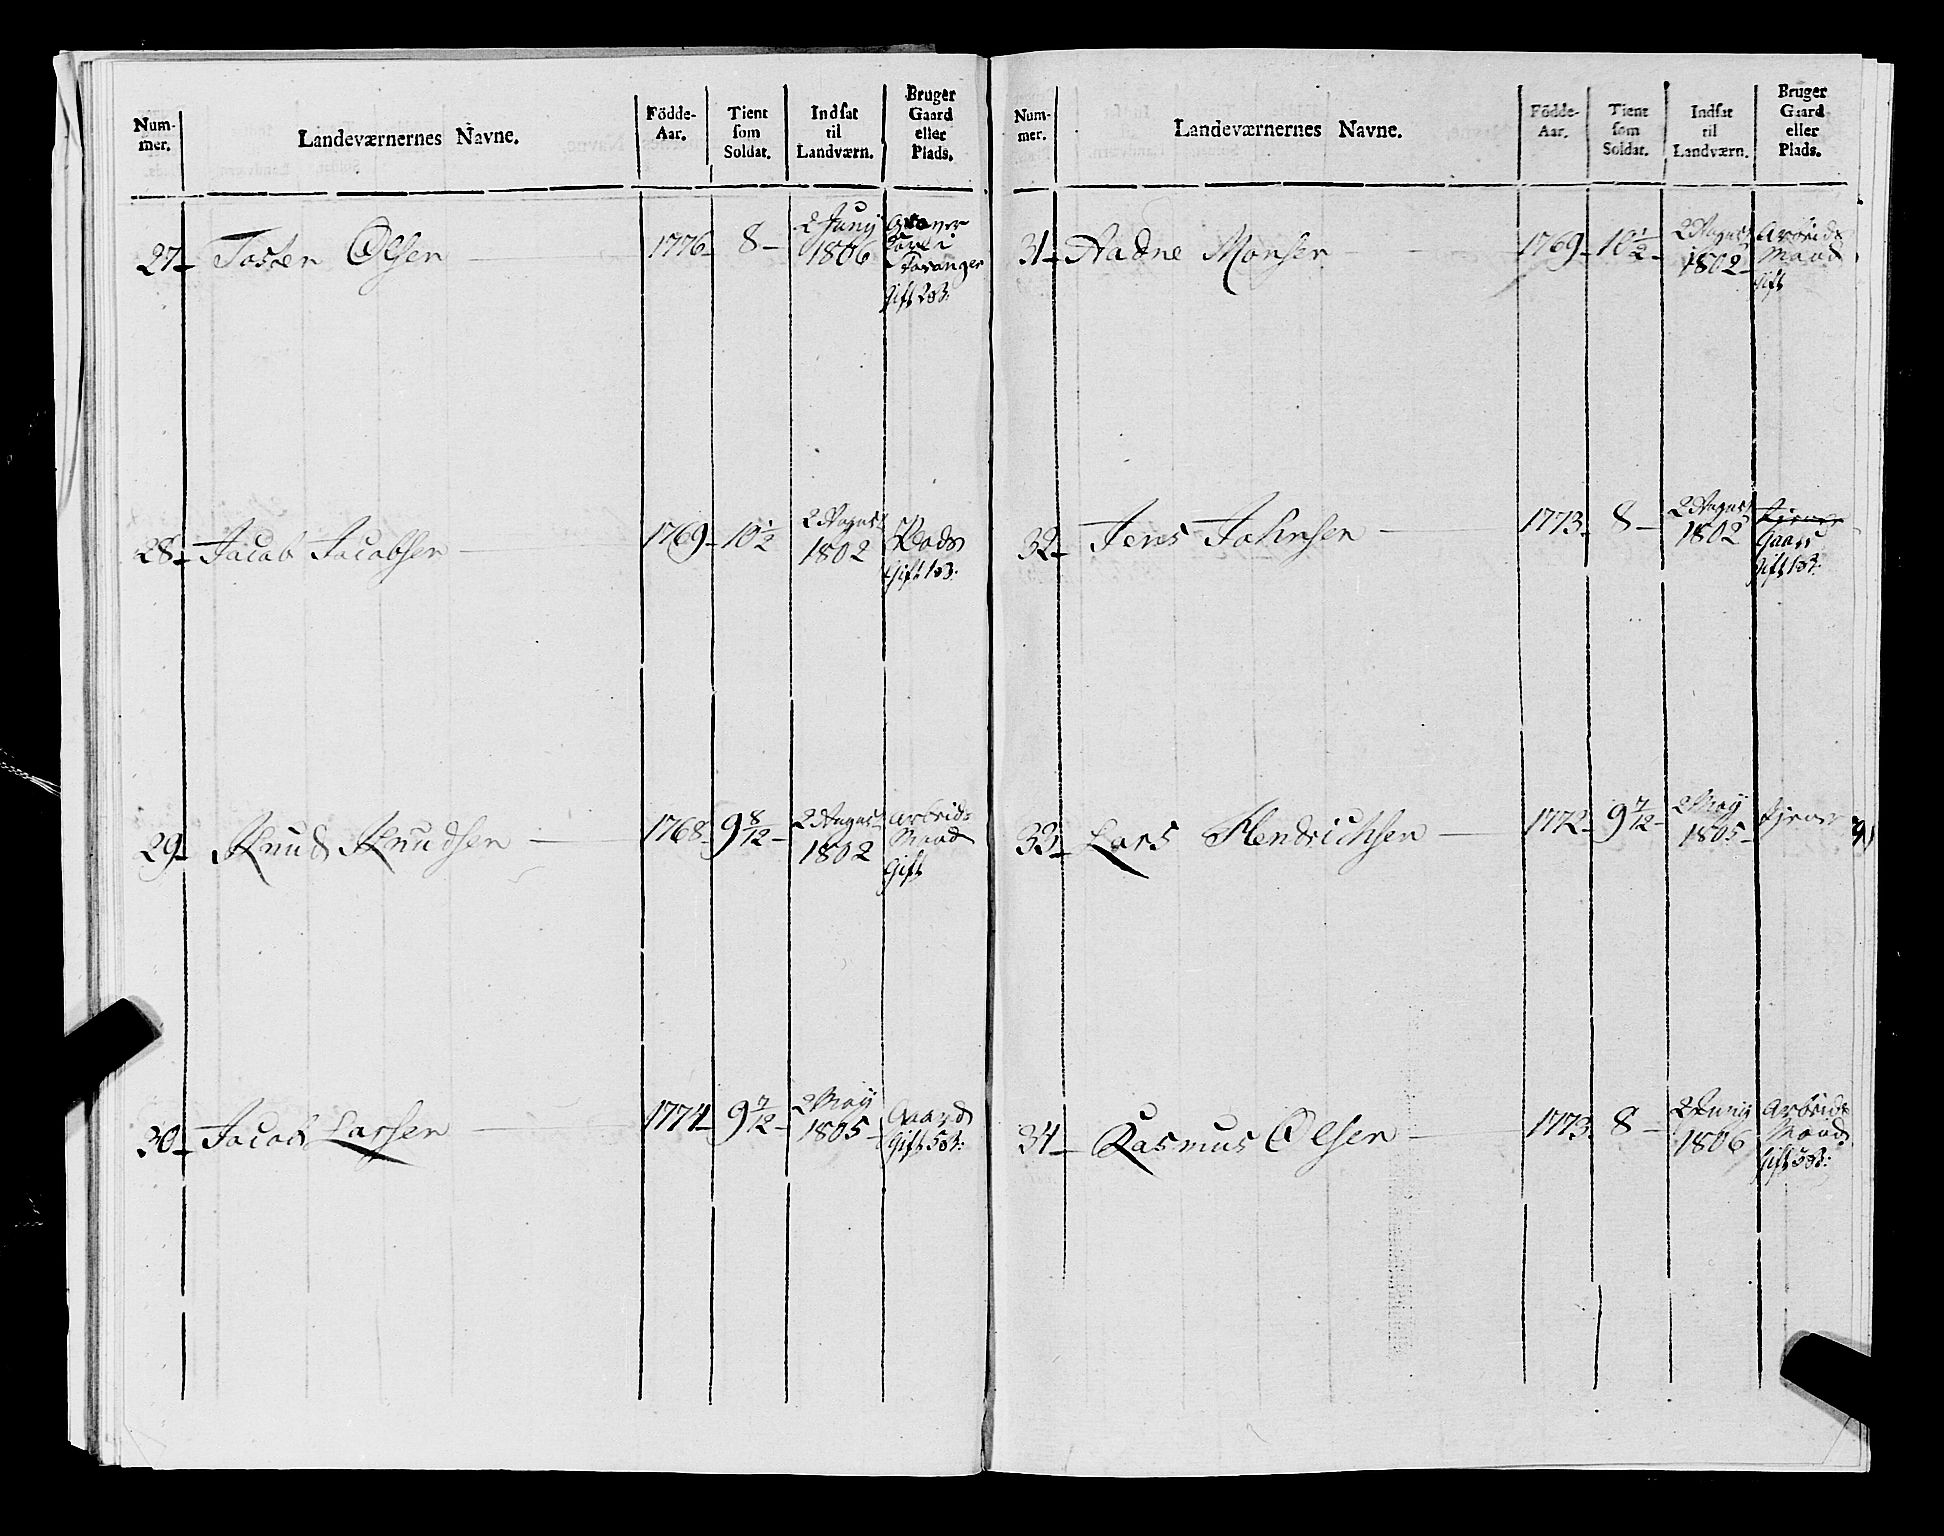 Num-
mer.
Landeværnernes Navne.
Födde-
Aar.
Tient
som
Soldat.
Indsat
til
Landværn.
Bruger
Gaard
eller
Plads.
27 Tosten Olsen 1776 8
2 Juny
1806
Stavanger
Gift 2 B:
28 Jacob Jacobsen 1769 10 1/2
2 August
1802
Plads
Gift 1 B:
29 Knud Knudsen 1768 9 8/12
2 August
1802
Arbeids
Mand
Gift
30 Jacob Larsen 1774 9 7/12
2 May
1805
Gaard
Gift 5 B:
Num-
mer.
Landeværnernes Navne.
Födde-
Aar.
Tient
som
Soldat.
Indsat
til
Landværn.
Bruger
Gaard
eller
Plads.
31 Aadne Monsen 1769 10 1/2
2 August
1802
Arbeids
Mand
Gift
32 Jens Johnsen 1773 8
2 August
1802
Gaard
Gift 1 B:
33 Lars Hendrichsen 1772 9 7/12
2 May
1805
34 Rasmus Olsen 1773 8
2 Juny
1806
Arbeids
Mand
Gift 3 B: